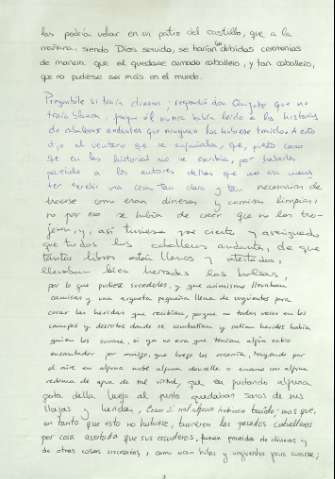 las podría velar en un patio del castillo, que a la
mañana, siendo Dios servido, se harían las debidas ceremonias
de manera que él quedase armado caballero, y tan caballero,
que no pudiese ser más en el mundo.
Preguntóle si traía dineros; respondió don Quijote que no
traía blanca, porque él nunca había leído en las historias
de caballeros andantes que ninguno los hubiese traído. A esto
dijo el ventero que se engañaba, que, puesto caso
que en las historias no se escribía, por haberles
parecido a los autores dellas que no era menester
escribir una cosa tan clara y tan necesaria de
traerse como eran dineros y camisas limpias,
no por eso se había de creer que no los tra-
jeron, y, así tuviese por cierto y averiguado
que todos los caballeros andantes, de que
tantos libros están llenos y atestados,
llevaban bien herradas las bolsas,
por lo que pudiese sucederles, y que asimismo llevaban
camisas y una arqueta pequeña llena de ungüentos para
curar las heridas que recibían, porque no todas veces en los
campos y desiertos donde se combatían y salían heridos había
quien los curase, si ya no era que tenían algún sabio
encantador por amigo, que luego los socorría, trayendo por
el aire en alguna nube alguna doncella o enano con alguna
redoma de agua de tal virtud, que en gustando alguna
gota della luego al punto quedaban sanos de sus
llagas y heridas, como si mal alguno hubiesen tenido; mas que,
en tanto que esto no hubiese, tuvieron los pasados caballeros
por cosa acertada que sus escuderos fuesen proveídos de dineros y
de otras cosas necesarias, como eran hilas y ungüentos para curarse;